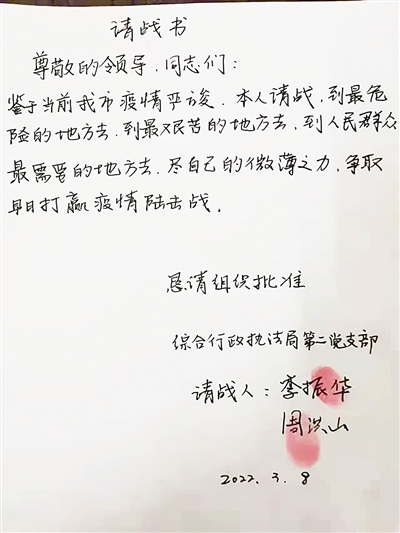 请战书
尊敬的领导、同志们：
鉴于当前我市疫情严峻．本人请战，到最危
险的地方去，到最艰苦的地方去，到人民群众
最需要的地方去．尽自己的微薄之力．争取
早日打赢疫情陆击战．
恳请组织批准
综合行政执法局第二党支部
请战人：李振华
周洪山
2022．3．8